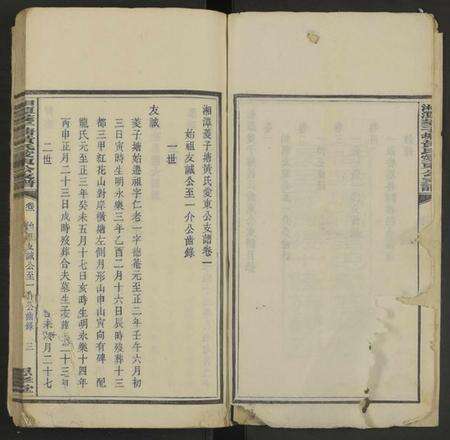 湘潭菱子塘黃氏愛東公支譜卷一
始祖友誠公至一介公齒錄
一世
友誠
菱子塘始遷祖字仁老一字德菴元至正二年壬午六月初
三日寅時生明永樂三年乙酉二月十六日辰時歿葬十三
都三甲紅花山對岸橫塘左側月形山申山寅向有碑 配
龍氏元至正三年癸未五月十七日亥時生明永樂十四年
丙申正月二十三日戌時歿葬合夫墓生子
二世
未 月二十七
卷一 始祖友誠公至一介公齒錄 三